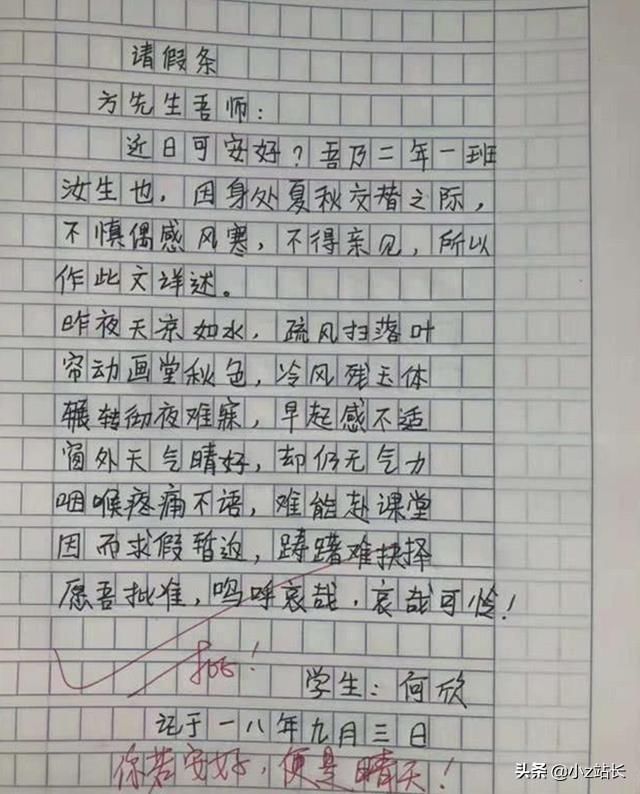 请假条
方先生吾师：
近日可安好？吾乃二年一班
汝生也，因身处夏秋交替之际，
不慎偶感风寒，不得亲见，所以
作此文详述。
昨夜天凉如水，疏风扫落叶
帘动画堂秋色，冷风残玉体
辗转彻夜难寐，早起感不适
窗外天气晴好，却仍无气力
咽喉疼痛不语，难能赴课堂
因而求假暂迫，踌躇难抉择
愿吾批准，呜呼哀哉，哀哉可怜！
批！
学生：何欣
记于一八年九月三日
你若安好，便是晴天！
头条 @小z站长